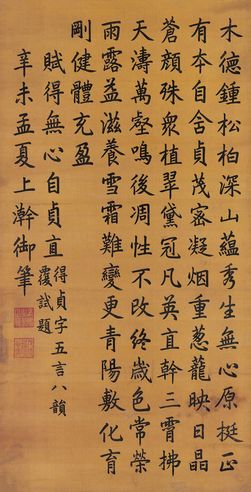 木德鍾松柏深山蘊秀生無心原挺正
有本自含貞茂密凝烟重葱蘢映日晶
蒼顏殊衆植翠黛冠凡英直幹三霄拂
天濤萬壑鳴後凋性不改終歲色常榮
雨露益滋養雪霜難變更青陽敷化育
剛健體充盈
賦得無心自貞直
得貞字五言八韻
覆試題
辛未孟夏上澣御筆